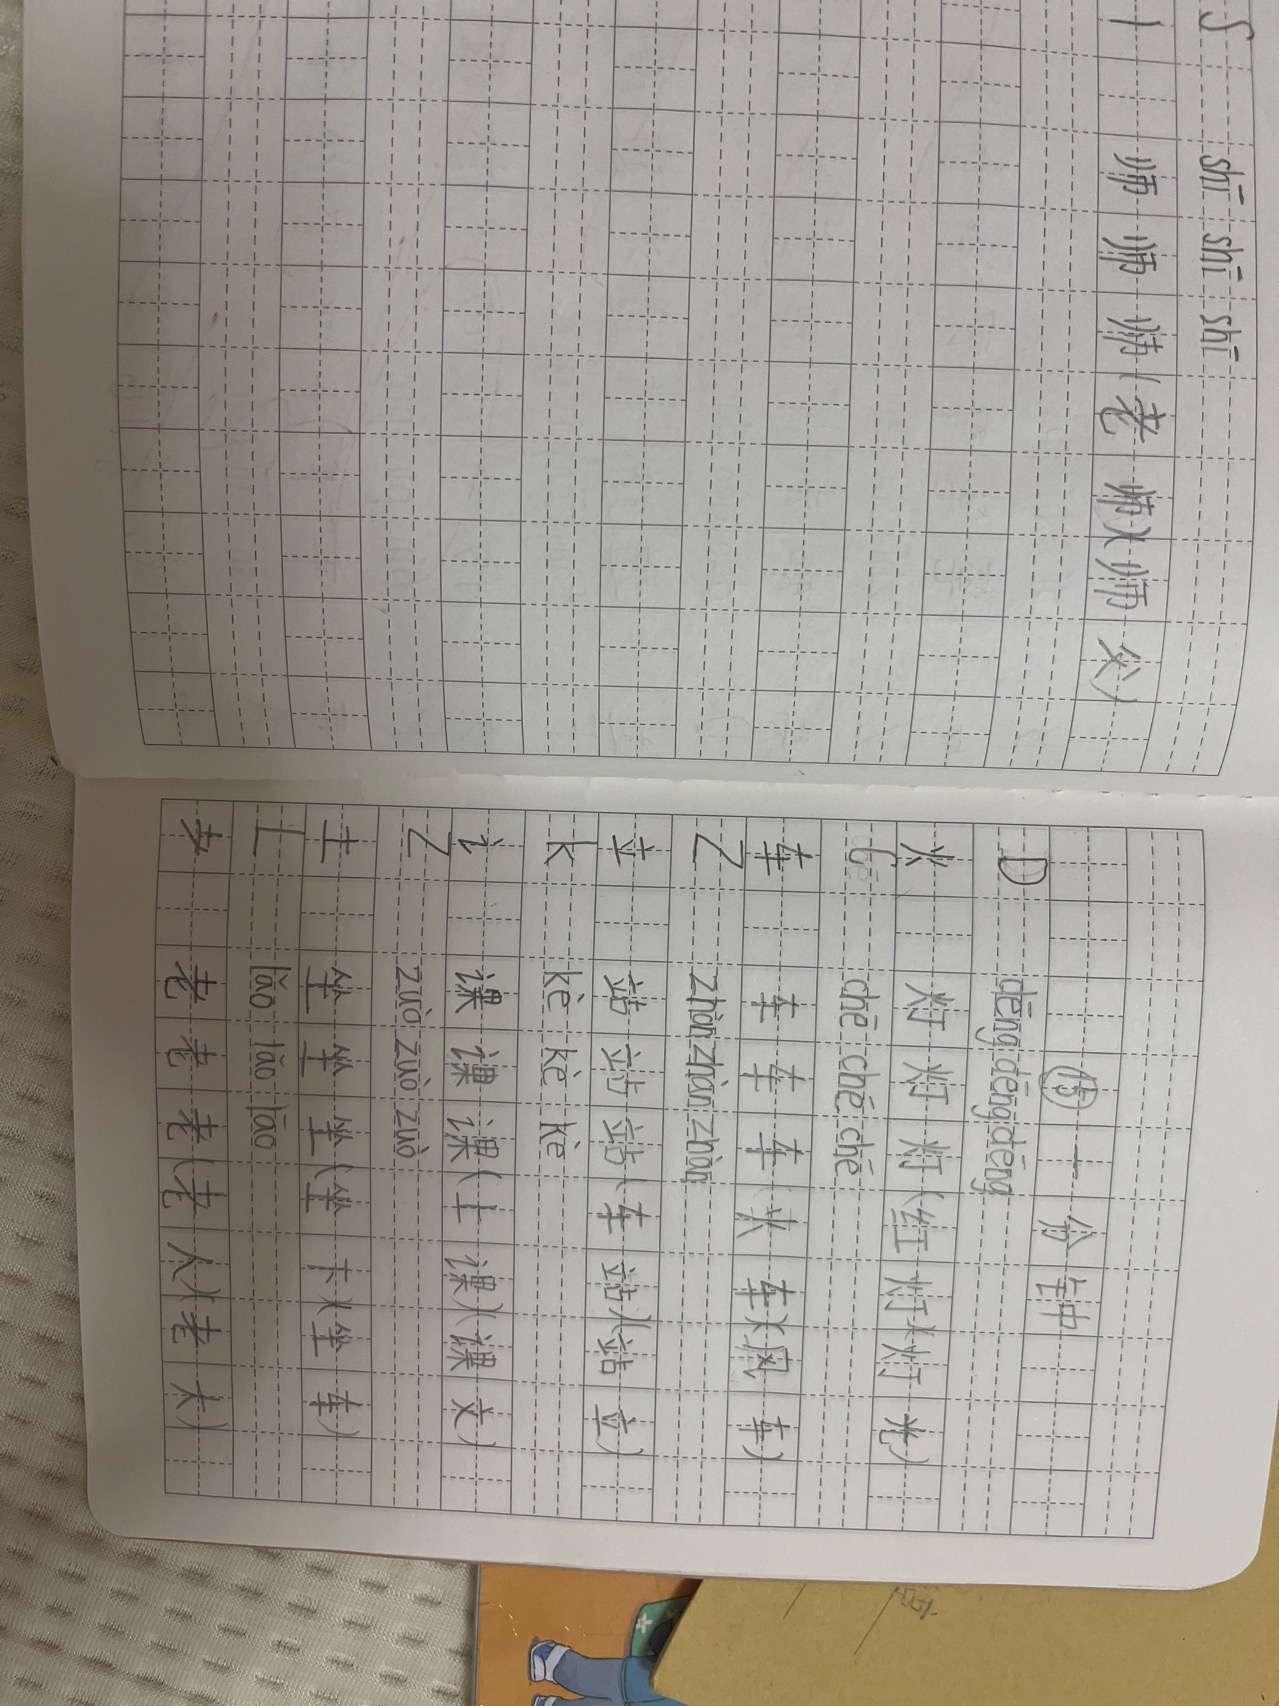 S shī shī shī
丨 师 师 师(老师)(师父)
⑮一分钟
D dēng dēng dēng
火 灯 灯 灯(红灯)(灯光)
C chē chē chē
车 车 车 车(火车)(风车)
Z zhàn zhàn zhàn
立 站 站 站(车站)(站立)
k kè kè kè
讠 课 课 课(上课)(课文)
Z zuò zuò zuò
土 坐 坐 坐(坐下)(坐车)
L lǎo lǎo lǎo
耂 老 老 老(老人)(老大)